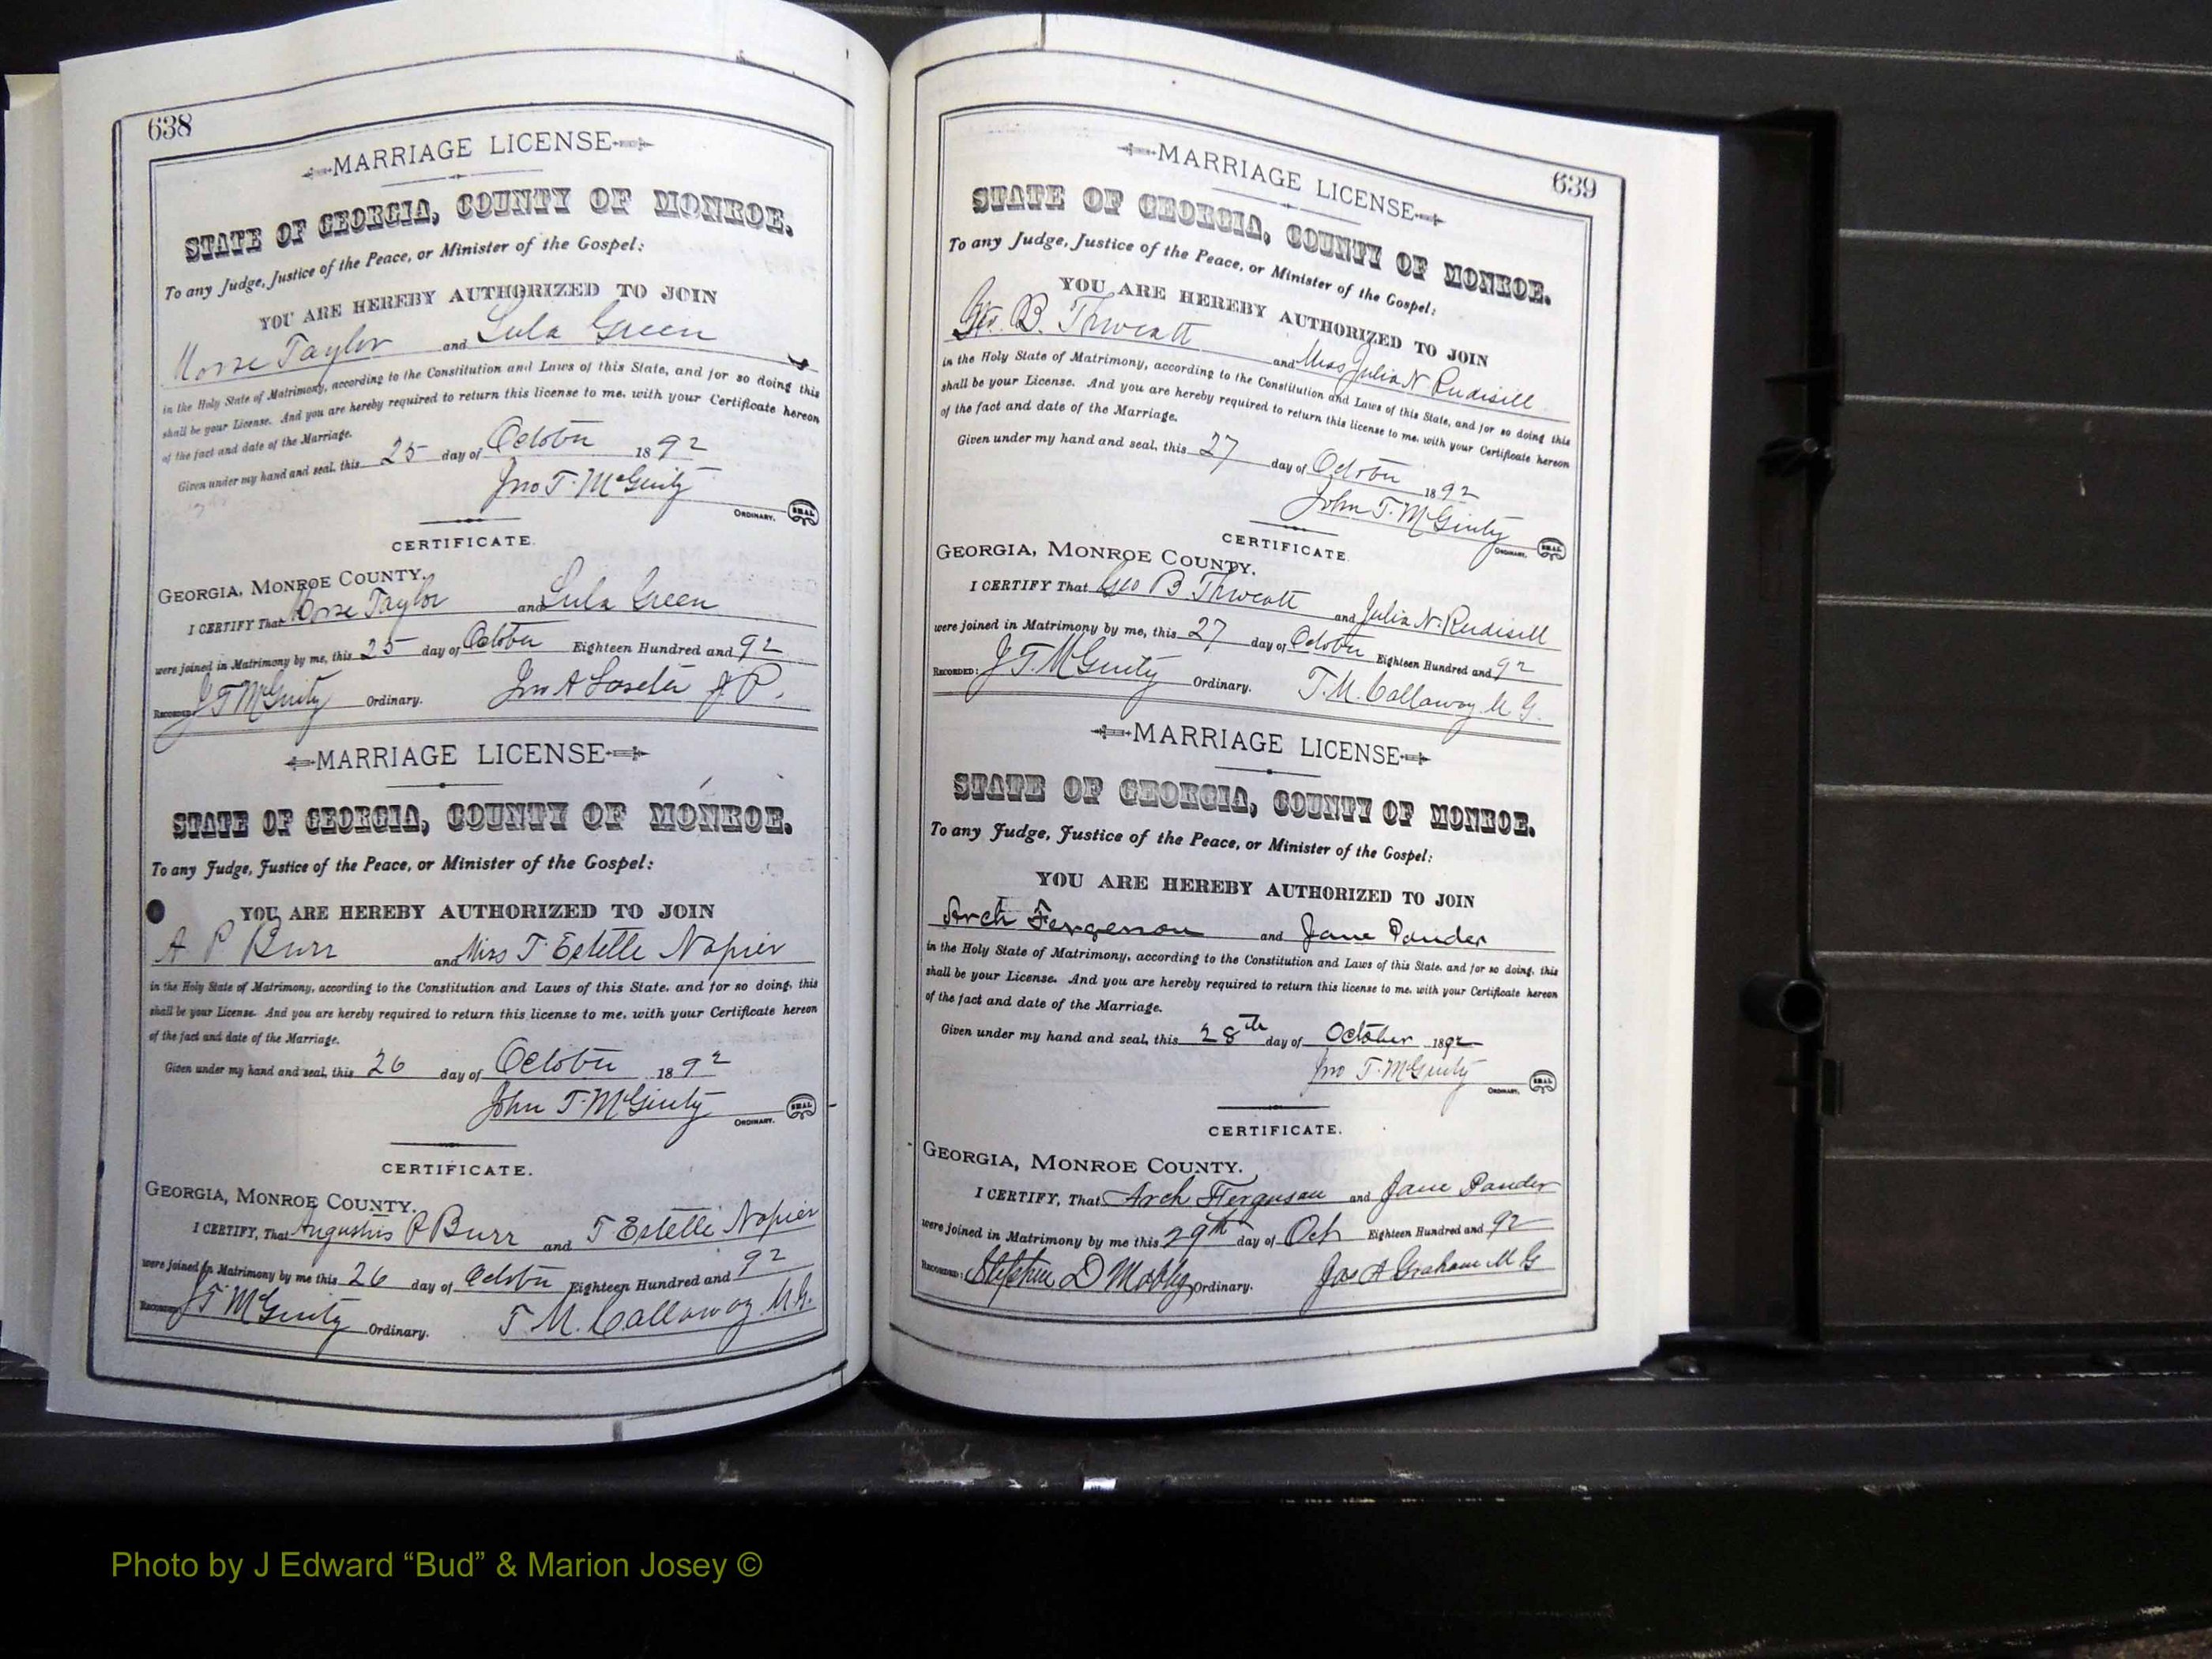 638
MARRIAGE LICENSE
STATE OF GEORGIA, COUNTY OF MONROE.
To any Judge, Justice of the Peace, or Minister of the Gospel:
YOU ARE HEREBY AUTHORIZED TO JOIN
Taylor and Lula Green
in the Holy State of Matrimony, according to the Constitution and Laws of this State, and for so doing this
shall be your License. And you are hereby required to return this license to me, with your Certificate hereon
of the fact and date of the Marriage.
Given under my hand and seal, this 25 day of October 1892
Jno T. McGinty
ORDINARY. SEAL
CERTIFICATE.
GEORGIA, MONROE COUNTY.
I CERTIFY That Taylor and Lula Green
were joined in Matrimony by me, this 25 day of October Eighteen Hundred and 92
RECORDED: J T McGinty Ordinary. Jno A J P.
MARRIAGE LICENSE
STATE OF GEORGIA, COUNTY OF MONROE.
To any Judge, Justice of the Peace, or Minister of the Gospel:
YOU ARE HEREBY AUTHORIZED TO JOIN
A P Burr and Miss T Estelle Napier
in the Holy State of Matrimony, according to the Constitution and Laws of this State, and for so doing, this
shall be your License. And you are hereby required to return this license to me, with your Certificate hereon
of the fact and date of the Marriage.
Given under my hand and seal, this 26 day of October 1892
John T. McGinty
ORDINARY. SEAL
CERTIFICATE.
GEORGIA, MONROE COUNTY.
I CERTIFY, That Augustus P Burr and T Estelle Napier
were joined in Matrimony by me this 26 day of October Eighteen Hundred and 92
RECORDED: J T McGinty Ordinary. T. M. Callaway M.G.
639
MARRIAGE LICENSE
STATE OF GEORGIA, COUNTY OF MONROE.
To any Judge, Justice of the Peace, or Minister of the Gospel:
YOU ARE HEREBY AUTHORIZED TO JOIN
Geo. B. Thweatt and Miss Julia N Rudisill
in the Holy State of Matrimony, according to the Constitution and Laws of this State, and for so doing this
shall be your License. And you are hereby required to return this license to me, with your Certificate hereon
of the fact and date of the Marriage.
Given under my hand and seal, this 27 day of October 1892
John T. McGinty
ORDINARY. SEAL
CERTIFICATE.
GEORGIA, MONROE COUNTY.
I CERTIFY That Geo B Thweatt and Julia N. Rudisill
were joined in Matrimony by me, this 27 day of October Eighteen Hundred and 92
RECORDED: J T. McGinty Ordinary. T. M. Callaway M G.
MARRIAGE LICENSE
STATE OF GEORGIA, COUNTY OF MONROE.
To any Judge, Justice of the Peace, or Minister of the Gospel:
YOU ARE HEREBY AUTHORIZED TO JOIN
Arch Fergerson and Jane Ponder
in the Holy State of Matrimony, according to the Constitution and Laws of this State, and for so doing, this
shall be your License. And you are hereby required to return this license to me, with your Certificate hereon
of the fact and date of the Marriage.
Given under my hand and seal, this 28th day of October 1892
Jno T. McGinty
ORDINARY. SEAL
CERTIFICATE.
GEORGIA, MONROE COUNTY.
I CERTIFY, That Arch Ferguson and Jane Ponder
were joined in Matrimony by me this 29th day of Oct Eighteen Hundred and 92
RECORDED: Stephen D Mobley Ordinary. Jas A Graham M G
Photo by J Edward “Bud” & Marion Josey ©